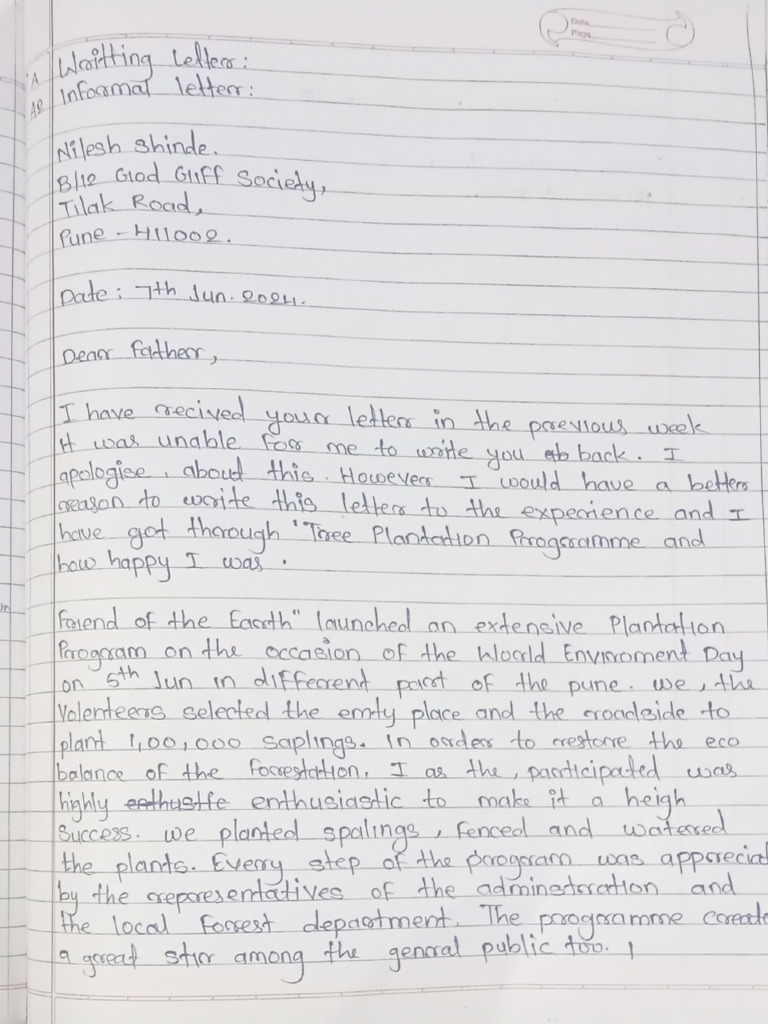 Date
Page
A Writting Letter:
A2 Informal letter:
Nilesh Shinde.
B/12 Glod Gliff Society,
Tilak Road,
Pune - 411002.
Date: 7th Jun. 2024.
Dear Father,
I have recived your letter in the previous week
It was unable for me to write you back. I
apologise. about this. However I would have a better
reason to write this letter to the experience and I
have got through 'Tree Plantation Programme and
how happy I was.
Friend of the Earth" launched an extensive Plantation
Program on the occasion of the World Enviroment Day
on 5th Jun in different part of the pune. we, the
Volenteers selected the emty place and the roadside to
plant 1,00,000 saplings. In order to restore the eco
balance of the forrestation. I as the, participated was
highly enthustfe enthusiastic to make it a heigh
success. we planted spalings, fenced and watered
the plants. Every step of the program was appreciat
by the representatives of the administration and
the local forrest department. The programme create
a great stir among the general public too. I